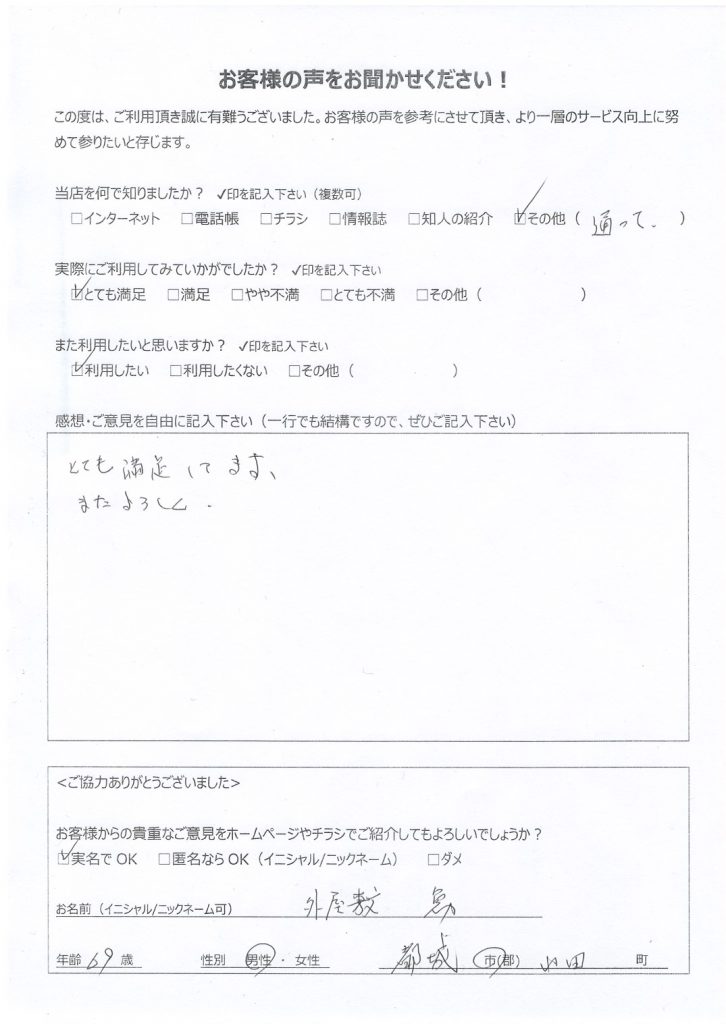 お客様の声をお聞かせください！
この度は、ご利用頂き誠に有難うございました。お客様の声を参考にさせて頂き、より一層のサービス向上に努
めて参りたいと存じます。
当店を何で知りましたか？ ✓印を記入下さい（複数可）
□インターネット □電話帳 □チラシ □情報誌 □知人の紹介 ☑その他（ 通って. ）
実際にご利用してみていかがでしたか？ ✓印を記入下さい
☑とても満足 □満足 □やや不満 □とても不満 □その他（ ）
また利用したいと思いますか？ ✓印を記入下さい
☑利用したい □利用したくない □その他（ ）
感想・ご意見を自由に記入下さい（一行でも結構ですので、ぜひご記入下さい）
とても満足してます、
またよろしく.
<ご協力ありがとうございました>
お客様からの貴重なご意見をホームページやチラシでご紹介してもよろしいでしょうか？
☑実名でOK □匿名ならOK（イニシャル/ニックネーム） □ダメ
お名前（イニシャル/ニックネーム可） 外屋敷
年齢 69 歳 性別 男性・女性 都城 市(郡) 田 町